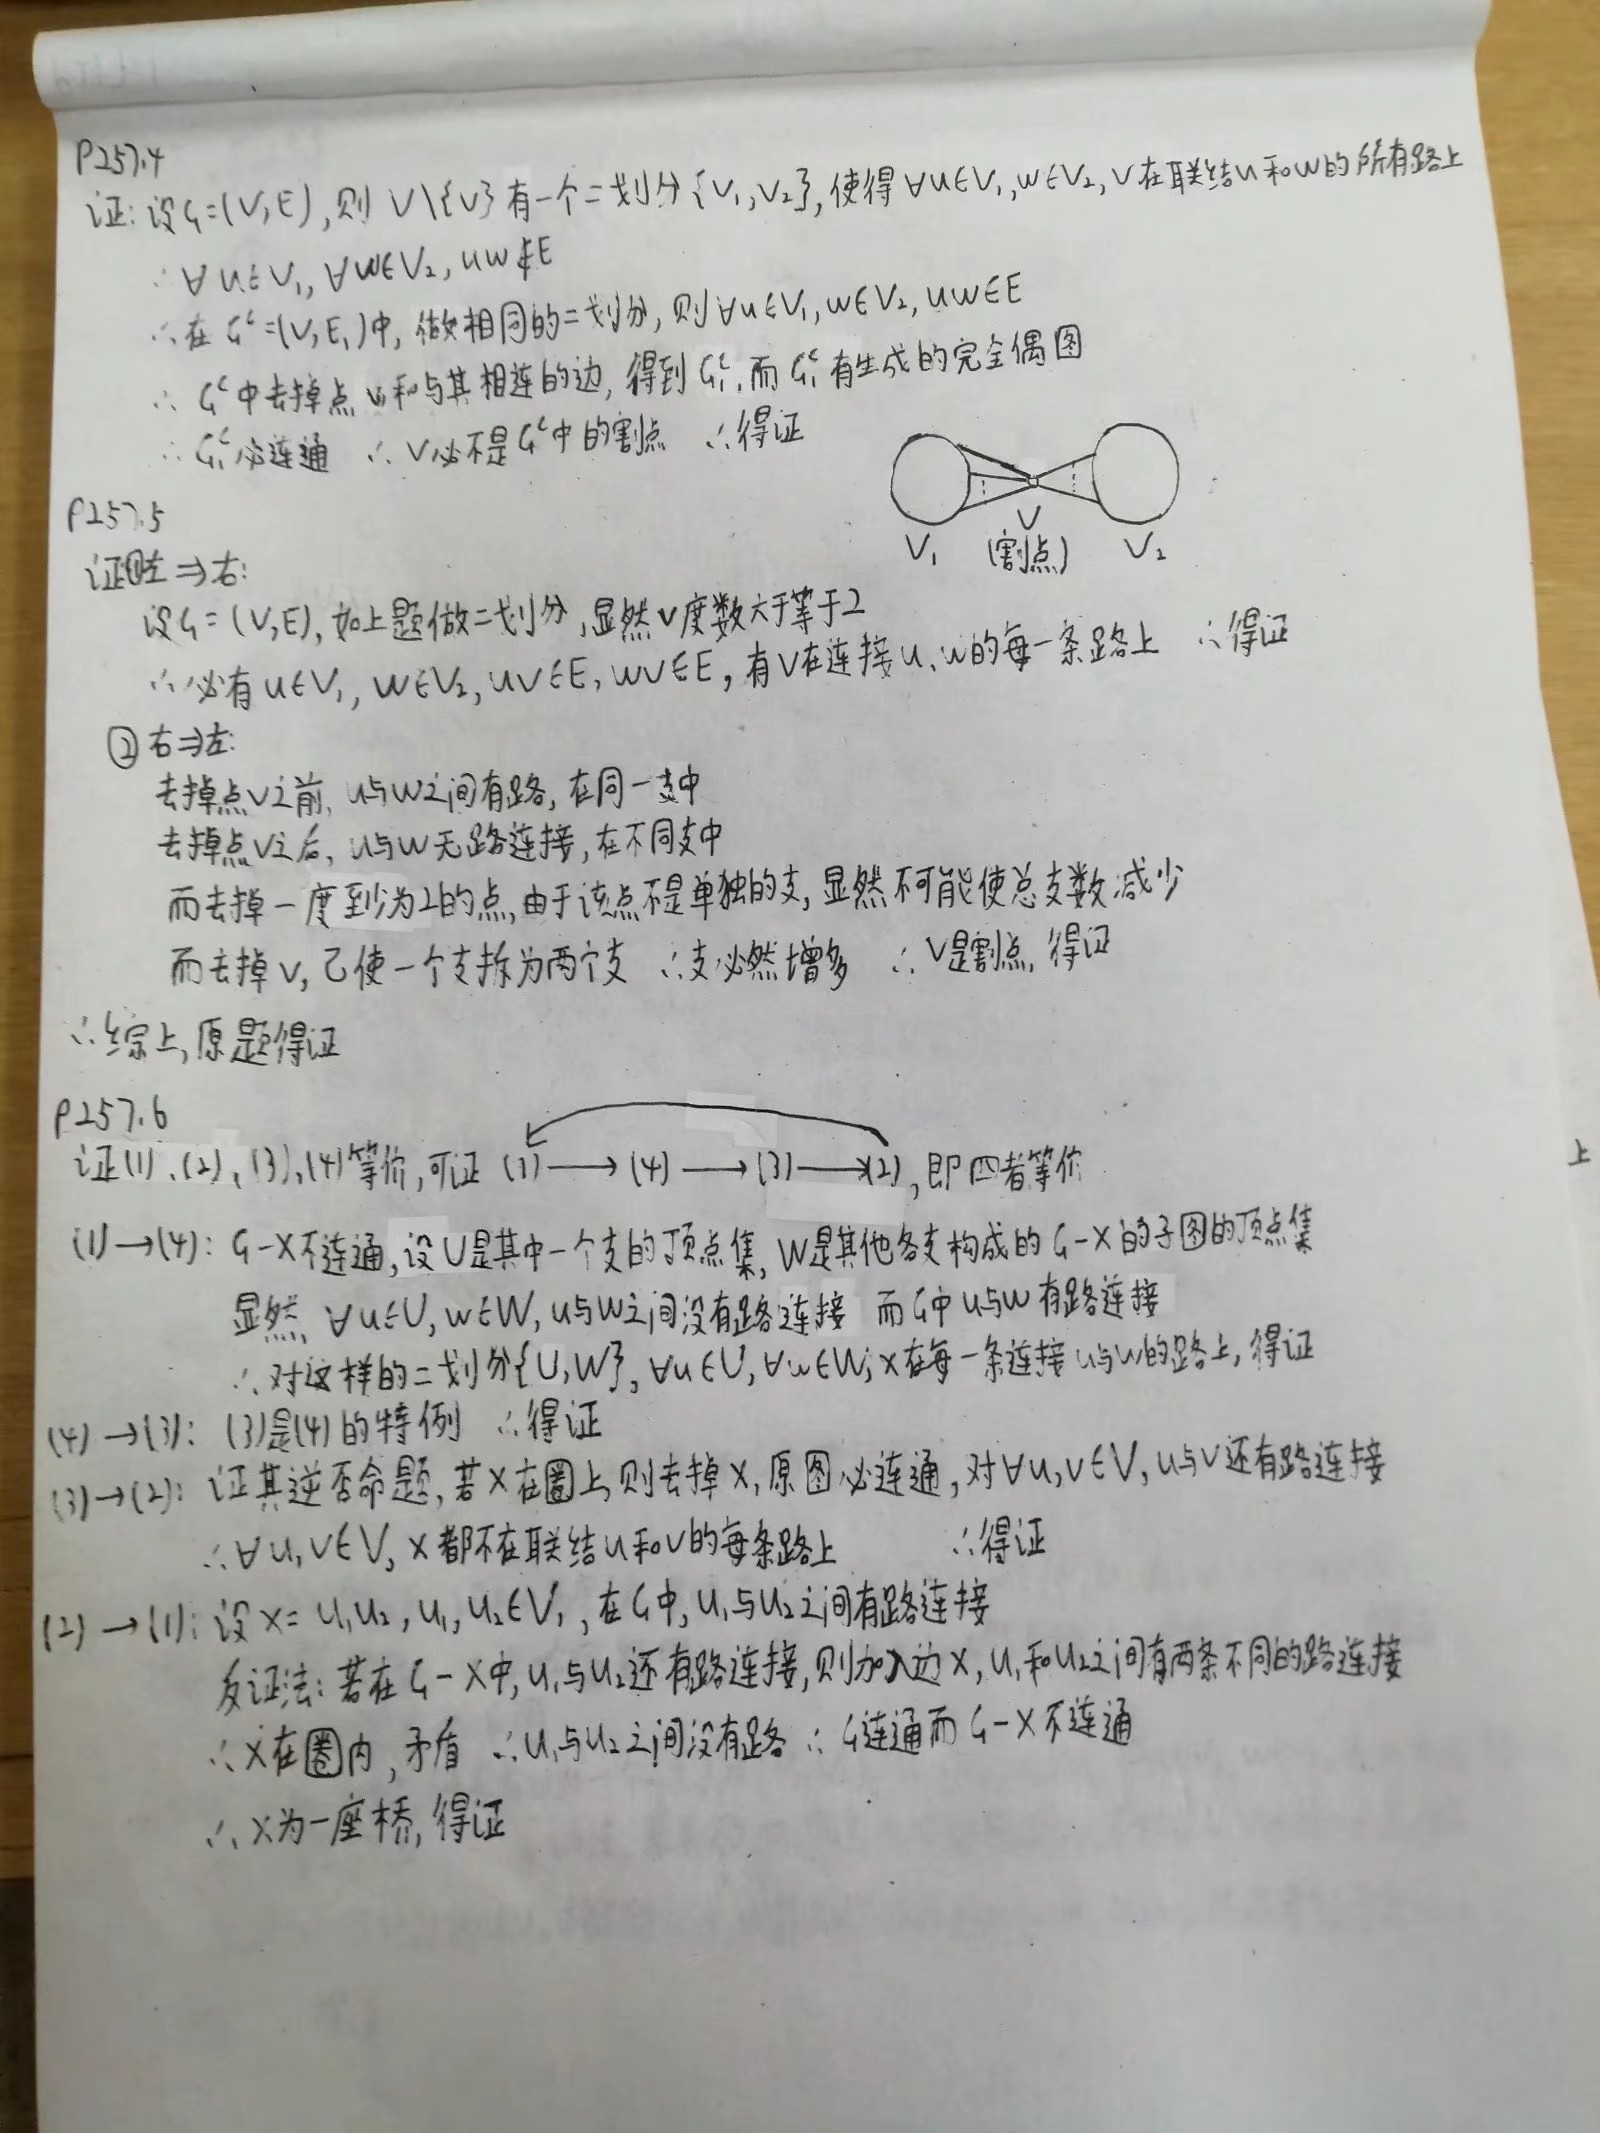 P257.4
证:设G=(V,E),则 V\{v}有一个二划分{V₁,V₂},使得∀u∈V₁,w∈V₂,v在联结u和w的所有路上
∴∀u∈V₁,∀w∈V₂,uw∉E
∴在Gᶜ=(V,E₁)中,做相同的二划分,则∀u∈V₁,w∈V₂,uw∈E
∴Gᶜ中去掉点v和与其相连的边,得到G₁ᶜ,而G₁ᶜ有生成的完全偶图
∴G₁ᶜ必连通 ∴V必不是Gᶜ中的割点 ∴得证
V₁ V (割点) V₂
P257.5
证①左⇒右:
设G=(V,E),如上题做二划分,显然v度数大于等于2
∴必有u∈V₁,w∈V₂,uv∈E,wv∈E,有v在连接u、w的每一条路上 ∴得证
②右⇒左:
去掉点v之前,u与w之间有路,在同一支中
去掉点v之后,u与w无路连接,在不同支中
而去掉一度至少为2的点,由于该点不是单独的支,显然不可能使总支数减少
而去掉v,已使一个支拆为两个支 ∴支必然增多 ∴v是割点,得证
∴综上,原题得证
P257.6
证(1)、(2)、(3)、(4)等价,可证 (1)→(4)→(3)→(2),即四者等价
(1)→(4): G-X不连通,设U是其中一个支的顶点集,W是其他各支构成的G-X的子图的顶点集
显然,∀u∈U,w∈W,u与w之间没有路连接 而G中u与w有路连接
∴对这样的二划分{U,W},∀u∈U,∀w∈W,x在每一条连接u与w的路上,得证
(4)→(3): (3)是(4)的特例 ∴得证
(3)→(2): 证其逆否命题,若x在圈上,则去掉x,原图必连通,对∀u,v∈V,u与v还有路连接
∴∀u,v∈V,x都不在联结u和v的每条路上 ∴得证
(2)→(1): 设x=u₁u₂,u₁,u₂∈V₁,在G中,u₁与u₂之间有路连接
反证法:若在G-X中,u₁与u₂还有路连接,则加入边x,u₁和u₂之间有两条不同的路连接
∴x在圈内,矛盾 ∴u₁与u₂之间没有路 ∴G连通而G-X不连通
∴x为一座桥,得证
上